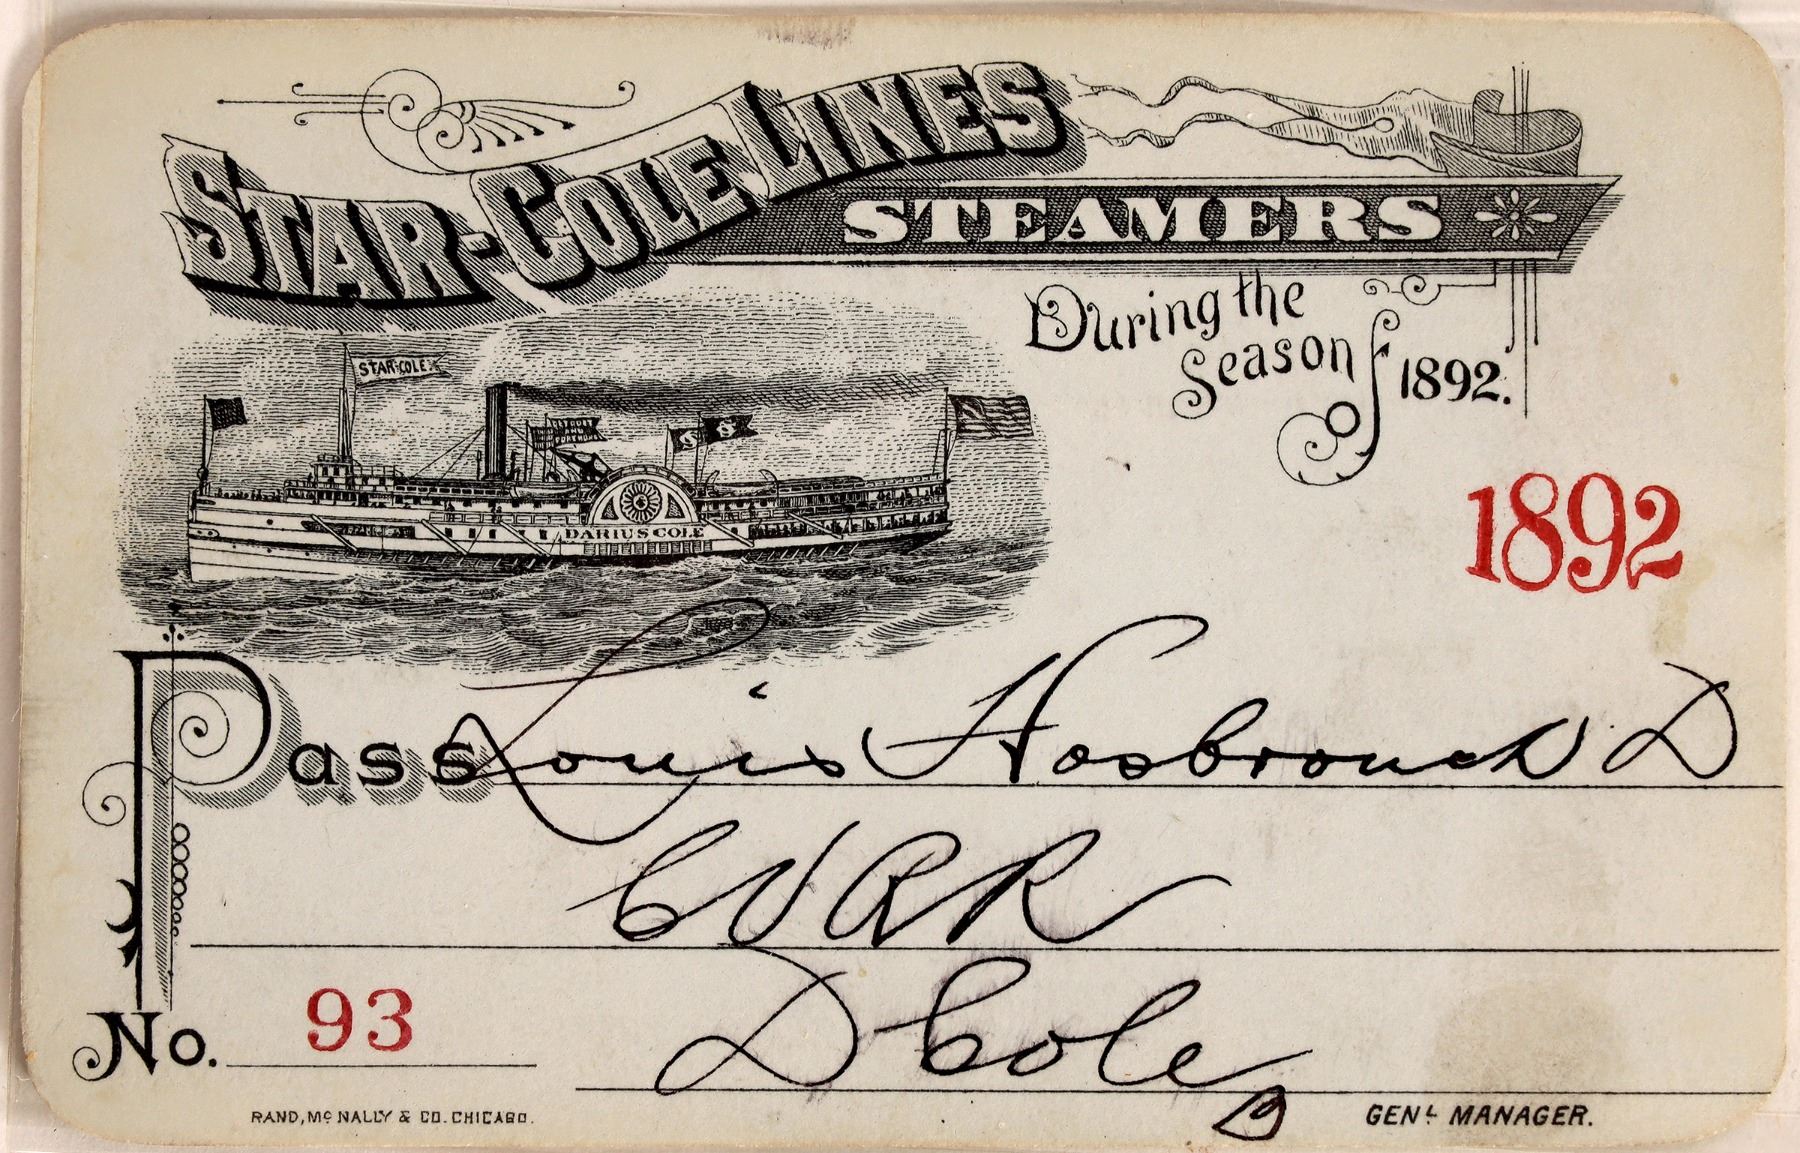 STAR-COLE LINES
STEAMERS
During the
Season of 1892.
STAR-COLE
S S
DARIUS COLE
1892
Pass Louis Hasbrouck D
CVRR
D Cole
No. 93
RAND, MC NALLY & CO. CHICAGO.
GENL MANAGER.